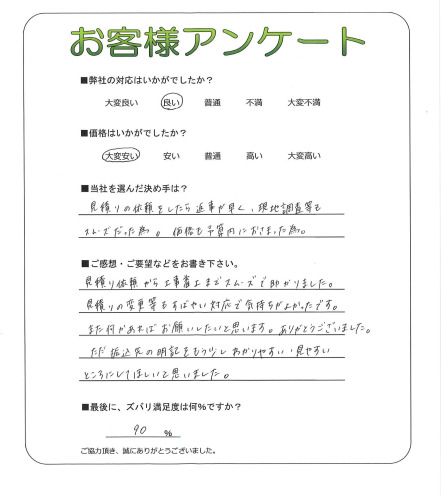 お客様アンケート
■弊社の対応はいかがでしたか？
大変良い 良い 普通 不満 大変不満
■価格はいかがでしたか？
大変安い 安い 普通 高い 大変高い
■当社を選んだ決め手は？
見積りの依頼をしたら返事が早く、現地調査等も
スムーズだった為。価格も予算内におさまった為。
■ご感想・ご要望などをお書き下さい。
見積り依頼から工事完了までスムーズで助かりました。
見積りの変更等もすばやい対応で気持ちがよかったです。
また何かあればお願いしたいと思います。ありがとうございました。
ただ振込先の明記をもう少しわかりやすい・見やすい
ところにしてほしいと思いました。
■最後に、ズバリ満足度は何%ですか？
90 %
ご協力頂き、誠にありがとうございました。